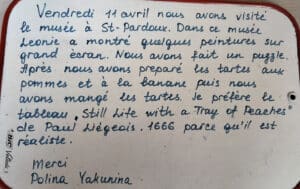 Vendredi 11 avril nous avons visité
le musée à St-Pardoux. Dans ce musée
Leonie a montré quelques peintures sur
grand écran. Nous avons fait un puzzle.
Après nous avons preparé les tartes aux
pommes et à la banane puis nous
avons mangé les tartes. Je préfère le
tableau „Still Life with a Tray of Peaches"
de Paul Liégeois. 1666 parce qu'il est
réaliste.
Merci
Polina Yakunina